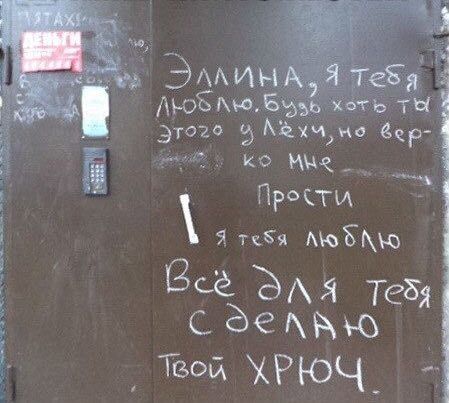 ДЕНЬГИ
Эллина, я тебя
люблю. Будь хоть ты
этого у Лёхи, но вер-
ко мне
Прости
я тебя люблю
Всё для тебя
сделаю
Твой ХРЮЧ.